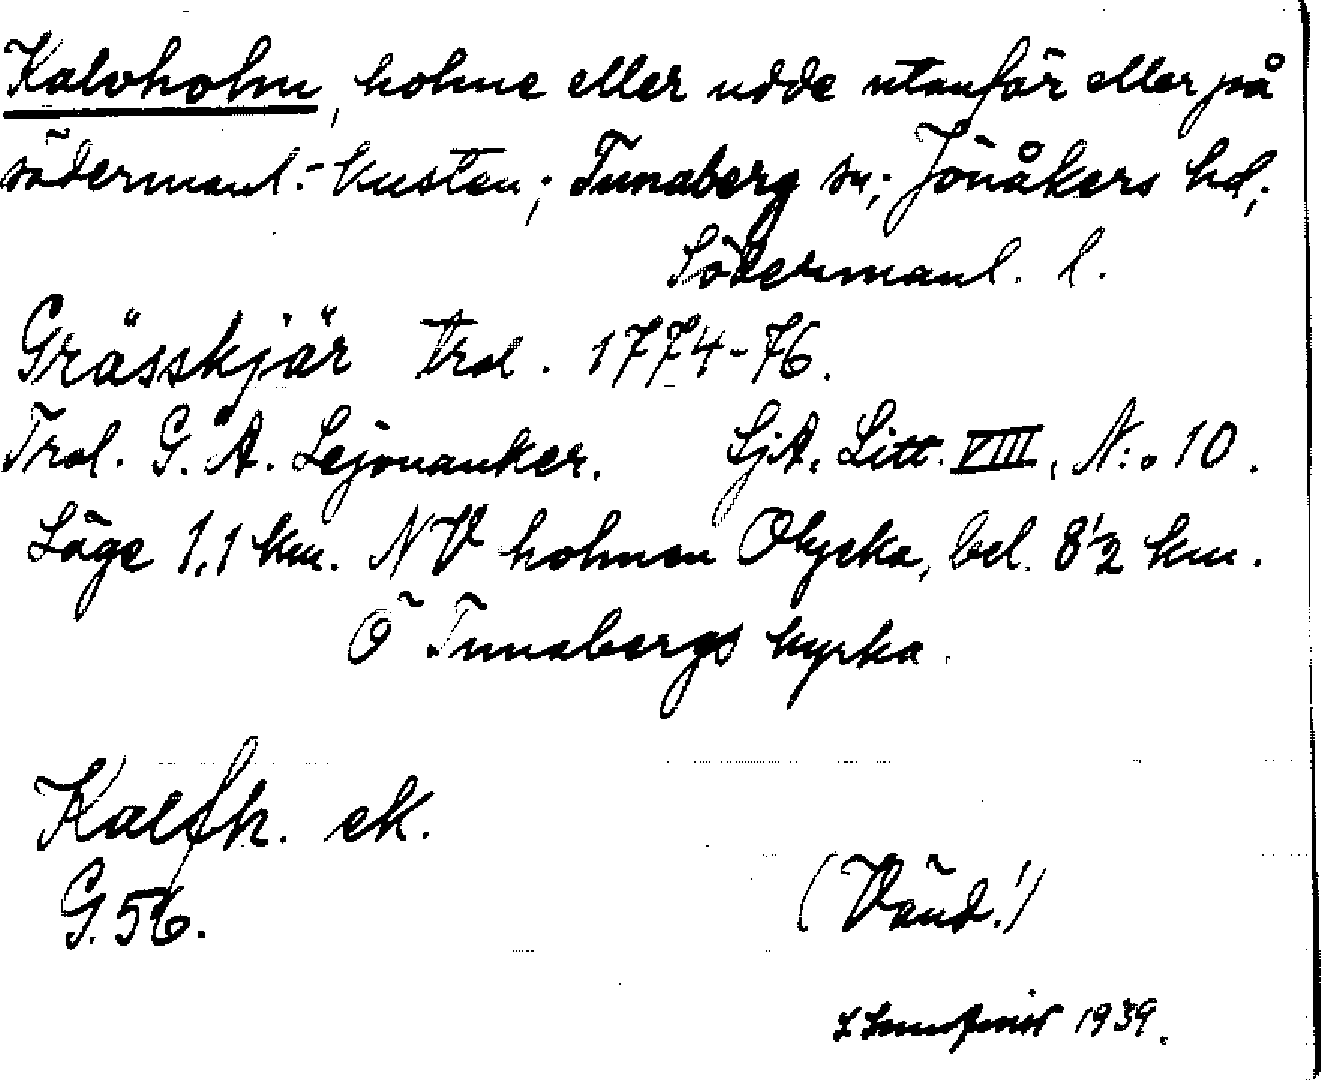 Kalvholm, holme eller udde utanför eller på
södermanl.-kusten; Tunaberg sn; Jönåkers hd;
Södermanl. l.
Grässkjär trol. 1774-76.
Trol. G. A. Lejonanker. SjA. Litt. VIII, N:o 10.
Läge 1,1 km. NV holmen Olycka, bel. 8½ km.
Ö Tunabergs kyrka.
Kalfh. ek.
G. 56.
(Vänd!)
1939.